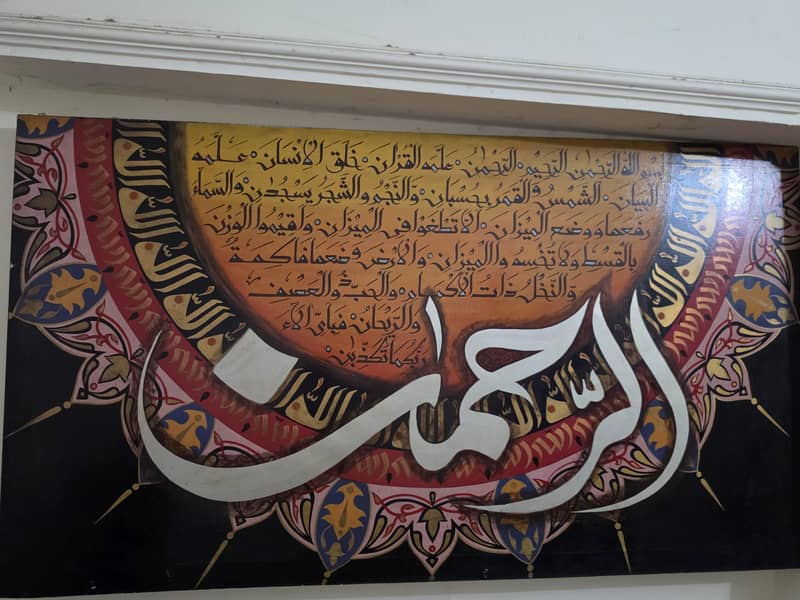 بسم الله الرحمن الرحيم الرحمن علم القران خلق الانسان علمه
البيان الشمس والقمر بحسبان والنجم والشجر يسجدان والسماء
رفعها ووضع الميزان الا تطغوا في الميزان واقيموا الوزن
بالقسط ولا تخسروا الميزان والارض وضعها فاكهة
والنخل ذات الاكمام والحب ذو العصف
والريحان فباي الاء
ربكما تكذبن
الرحمن